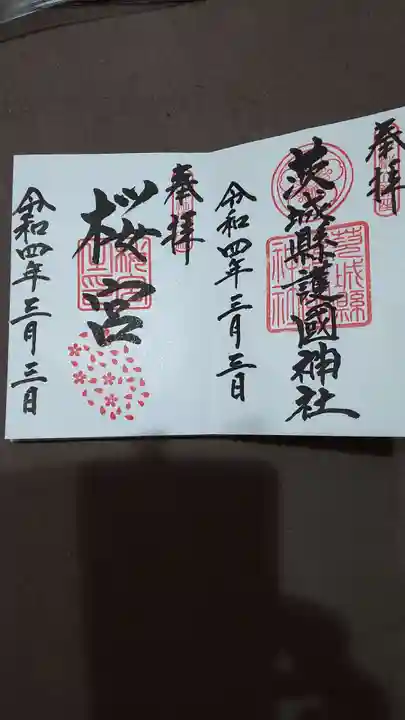 奉拝
茨城縣護國神社
令和四年三月三日
奉拝
桜宮
令和四年三月三日